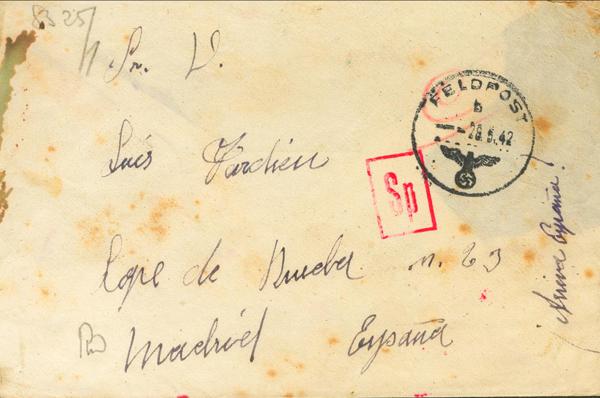 8325/1
Sr. D.
FELDPOST
b
-28.6.42
Luis
Sp
Lope de Rueda n. 23
Madrid España
Arriva España!